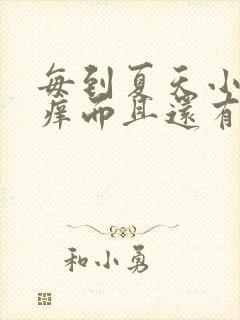 每到夏天小
痒而且還有
和小勇